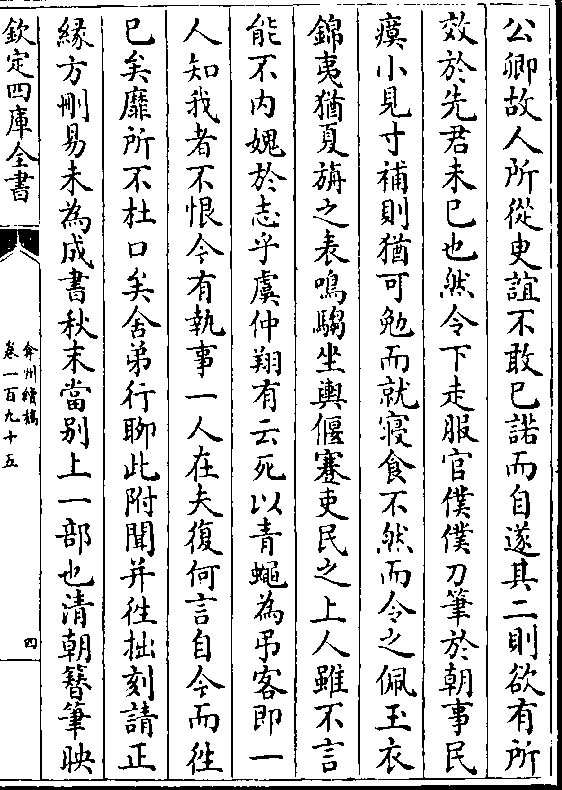 公卿故人所從吏誼不敢已諾而自遂其二則欲有所
效於先君未已也然令下走服官僕僕刀筆於朝事民
瘼小見寸補則猶可勉而就寢食不然而令之佩玉衣
錦夷猶夏旃之表鳴騶坐輿偃蹇吏民之上人雖不言
能不内媿於志乎虞仲翔有云死以青蠅為弔客即一
人知我者不恨今有執事一人在夫復何言自今而徃
已矣靡所不杜口矣舍弟行聊此附聞并徃拙刻請正
緣方刪易未為成書秋末當别上一部也清朝簪筆映
欽定四庫全書
弇州續稿
卷一百九十五
四